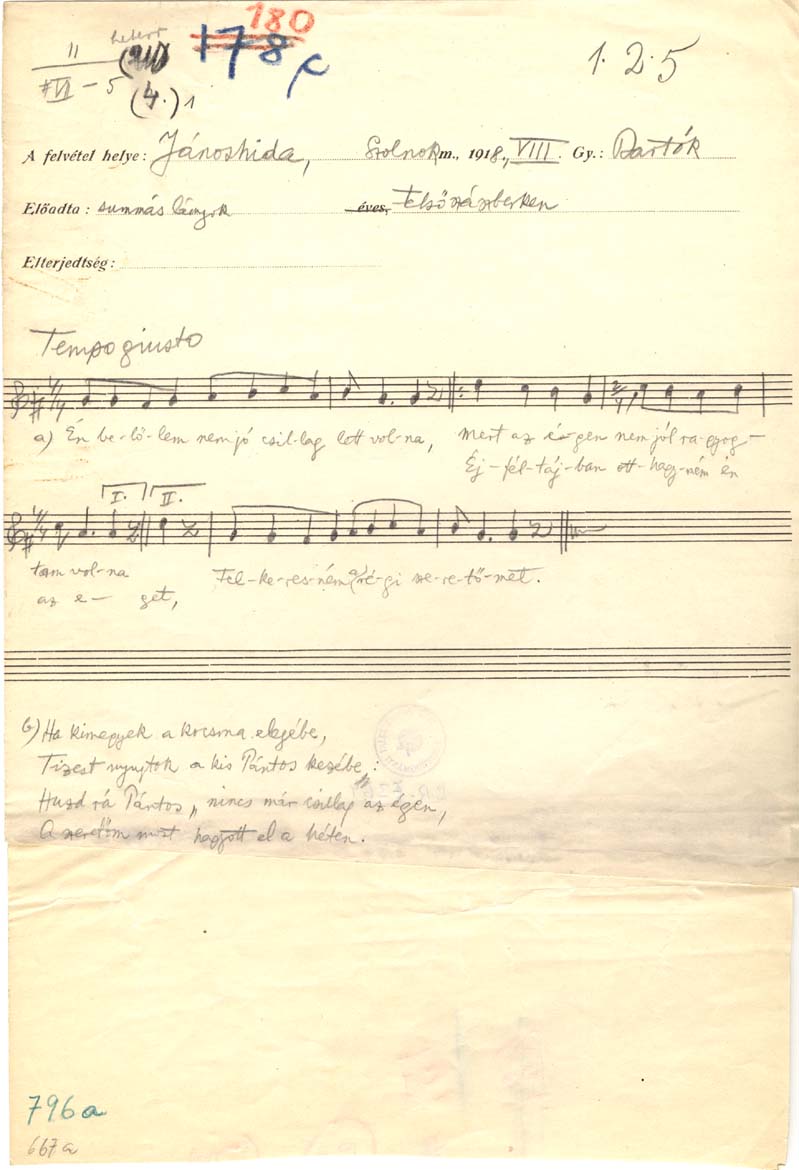 II
#VI – 5
(4.) 1
180
178 c
1. 2. 5
A felvétel helye: Jánoshida, Szolnok m., 1918., VIII. Gy.: Bartók
Előadta: summás lányok éves, Felsőszászberken
Elterjedtség:
Tempo giusto
a) Én be-lő-lem nem jó csil-lag lett vol-na, mert az é-gen nem jól ra-gyog-
Éj-fél-táj-ban ott-hagy-ném én
I. II.
tam vol-na Fel-ke-res-ném a ré-gi sze-re-tő-met.
az e- get,
b) Ha kimegyek a kocsma elejébe,
Tizest nyujtok a kis Pántos kezébe:
Huzd rá Pántos, nincs már csillag az égen,
A szeretőm most hagyott el a héten.
796a
667a